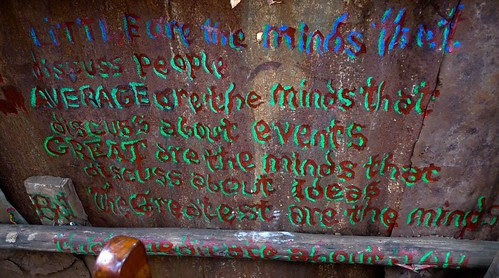 LITTLE are the minds that
discuss people
AVERAGE are the minds that
discuss about events
GREAT are the minds that
discuss about ideas
But the Greatest are the minds